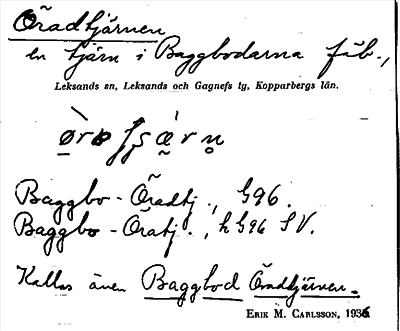 Öradtjärnen
en tjärn i Baggbodarna fäb.,
Leksands sn, Leksands och Gagnefs tg, Kopparbergs län.
Baggbo - Öradtj., G96.
Baggbo - Öratj., h G96 SV.
Kallas även Baggbod Öradtjärnen.
ERIK M. CARLSSON, 1936